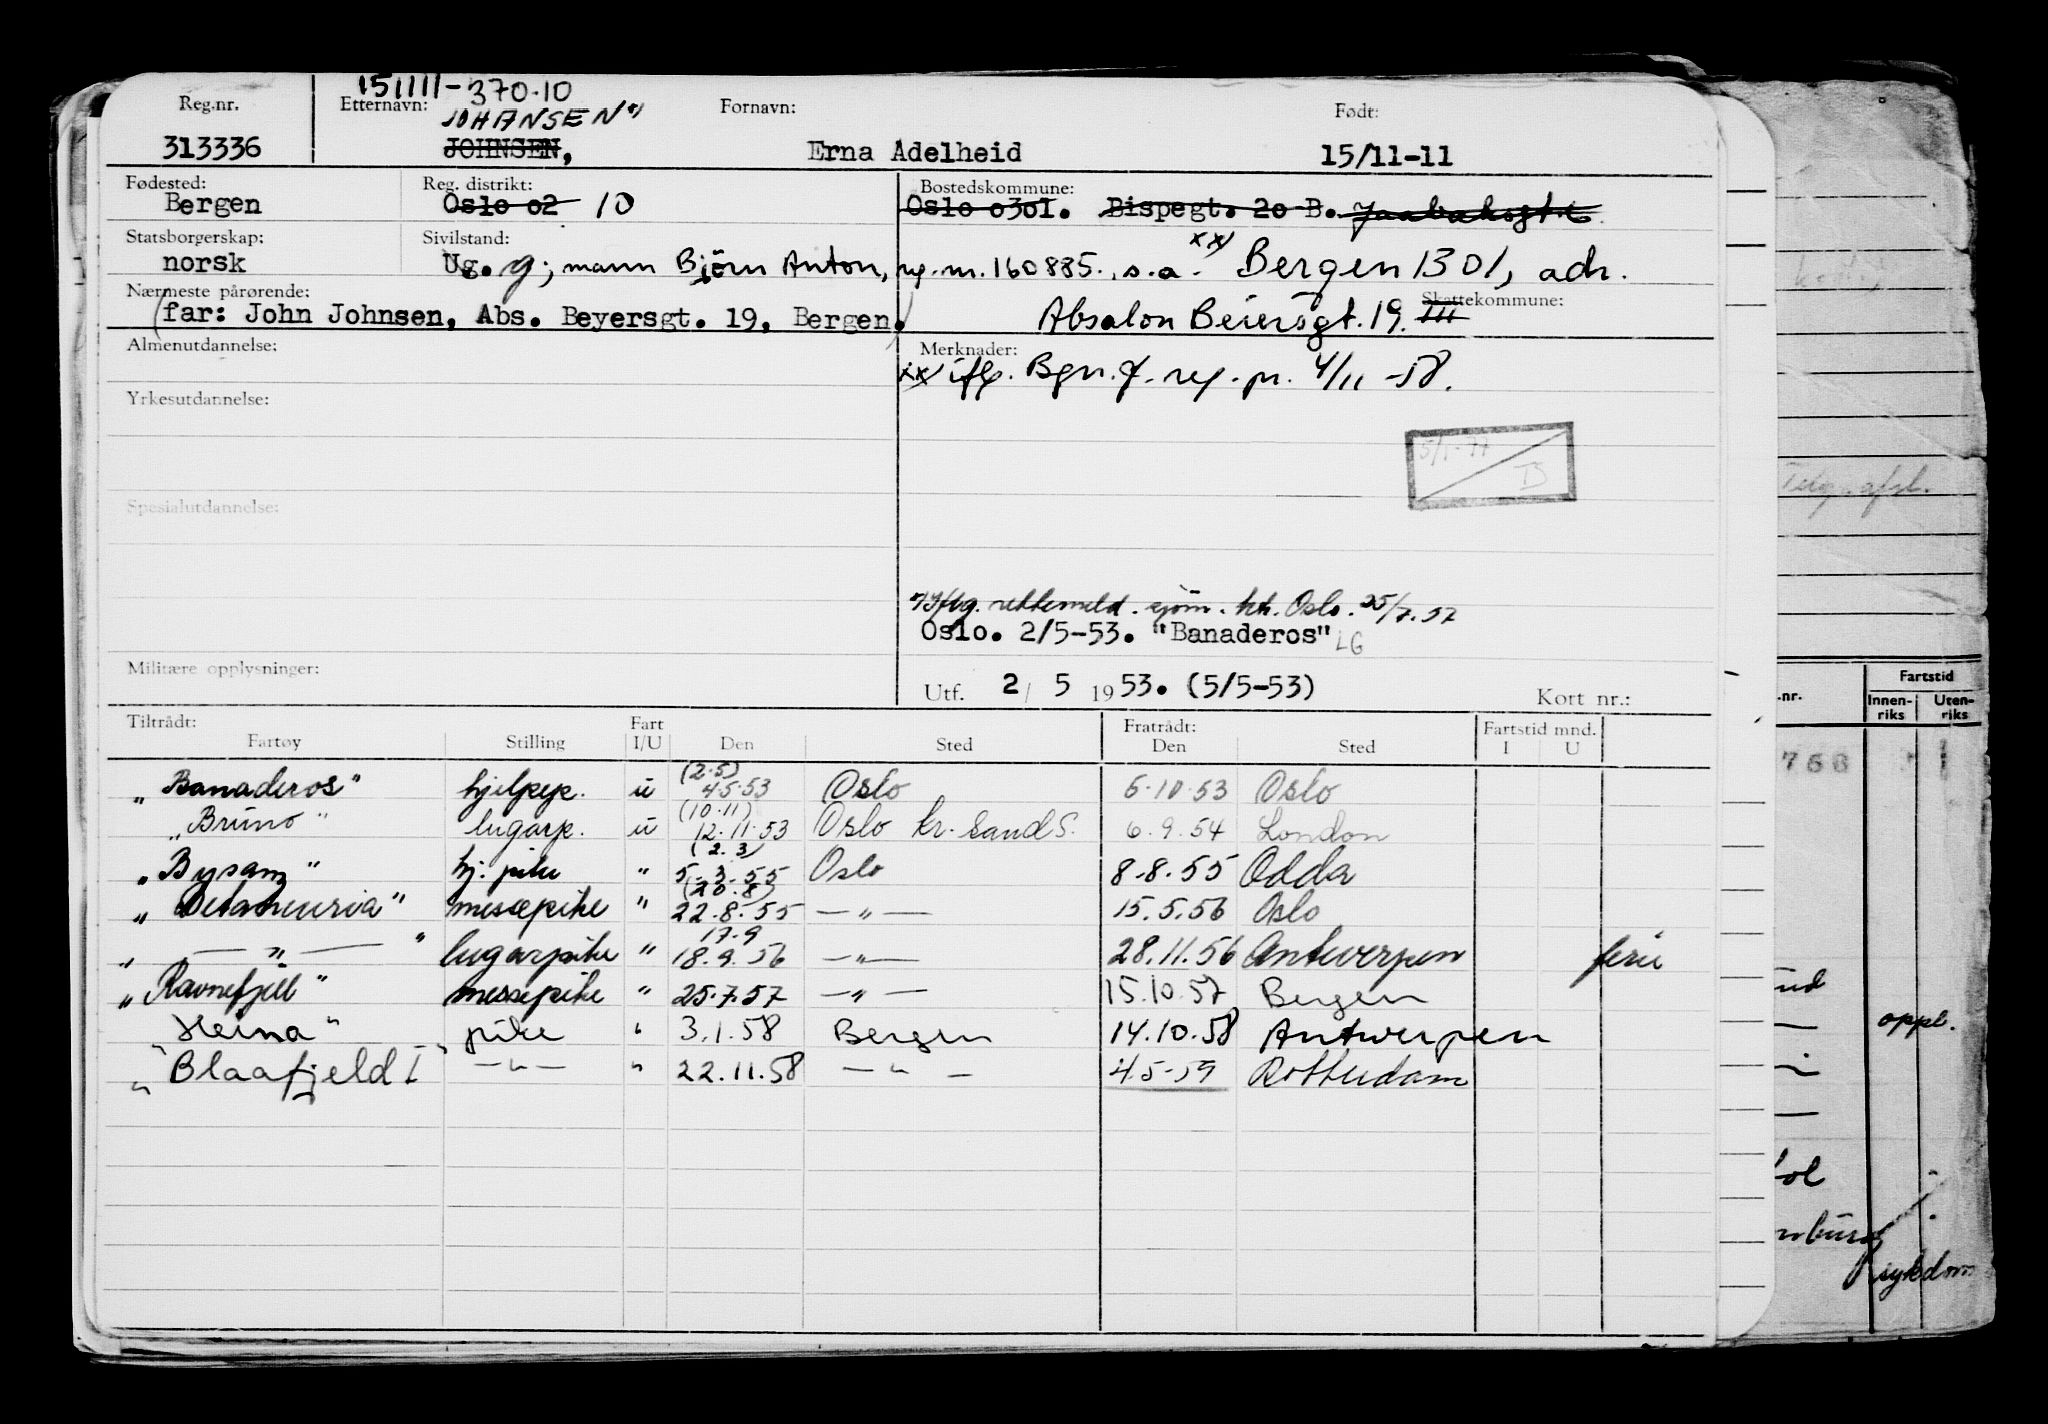 151111-370.10
Reg.nr. Etternavn: Fornavn: Født:
JOHANSEN x)
313336 JOHNSEN, Erna Adelheid 15/11-11
Fødested: Reg. distrikt: Bostedskommune:
Bergen Oslo 02 10 Oslo 0301. Bispegt. 20 B.
Statsborgerskap: Sivilstand: xx)
norsk Ug. g; mann Björn Anton, reg. nr. 160885., s.a. Bergen 1301, adr.
Nærmeste pårørende: Skattekommune:
(far: John Johnsen, Abs. Beyersgt. 19, Bergen.) Absalon Beiersgt. 19.
Almenutdannelse: Merknader:
xx) iflg. Bgn. f. reg. pr. 4/11 -58.
Yrkesutdannelse:
5/1-77
Spesialutdannelse:
x) Iflg. rettemeld. sjøm. kt. Oslo. 25/7.57
Oslo. 2/5-53. "Banaderos" LG
Militære opplysninger:
Utf. 2/ 5 1953. (5/5-53) Kort nr.:
Tiltrådt: Fart Fratrådt: Fartstid mnd.
Fartøy Stilling I/U Den Sted Den Sted I U
"Banaderos" hjelpep. u (2.5) 4.5.53 Oslo 6.10.53 Oslo
"Bruno" lugarp. u (10.11) 12.11.53 Oslo kr. sand S. 6.9.54 London
"Bysanz" hj. pike " (2.3) 5.3.55 Oslo 8.8.55 Odda
messepike " (20.8) 22.8.55 — " — 15.5.56 Oslo
" — " — " lugarpike " 17.9 18.9.56 — " — 28.11.56 Antwerpen ferie
"Ravnefjell" messepike " 25.7.57 — " — 15.10.57 Bergen
"Heina" pike " 3.1.58 Bergen 14.10.58 Antwerpen
"Blaafjeld I" — " — " 22.11.58 — " — 4.5-59 Rotterdam
Telegr. afsl.
Fartstid
.nr. Innen-riks Uten-riks
766
oppl.
sykdom